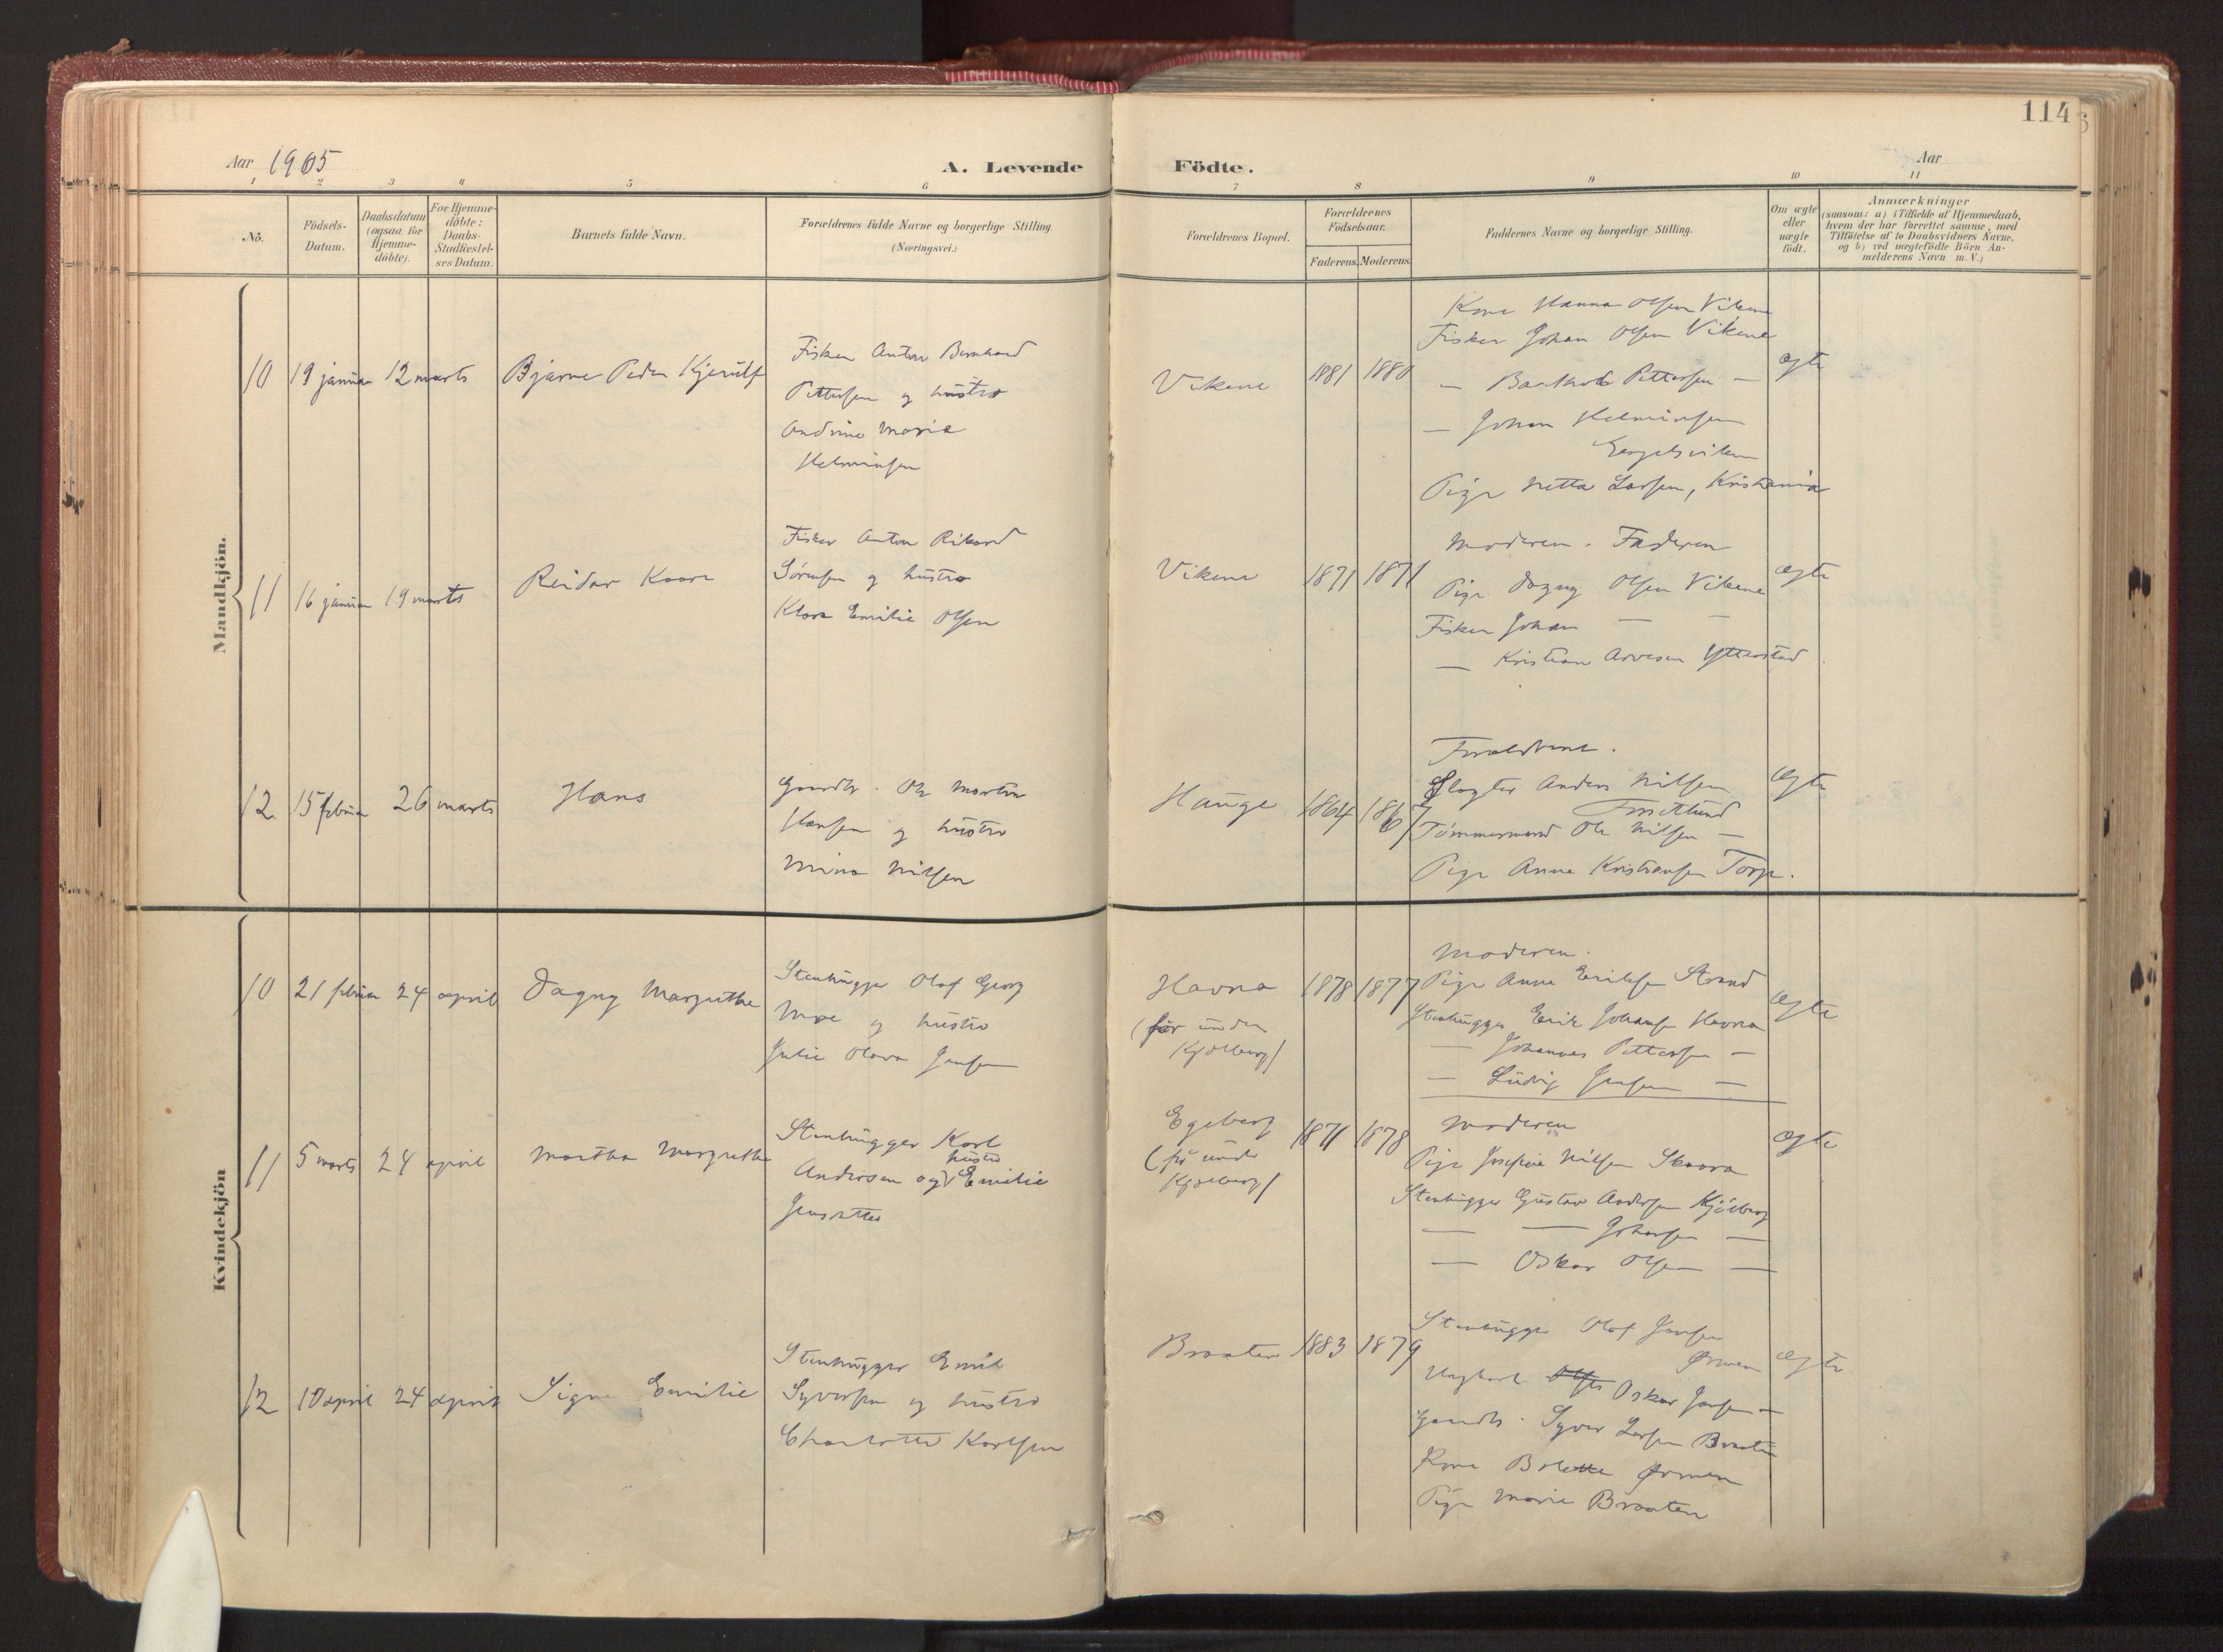 114
Aar 1905
A. Levende
Födte.
Aar
1 2 3 4 5 6 7 8 9 10 11
No.
Födsels-
Datum.
Daabsdatum
(ogsaa for
Hjemme-
döbte).
For Hjemme-
döbte:
Daabs-
Stadfæstel-
ses Datum.
Barnets fulde Navn.
Forældrenes fulde Navne og borgerlige Stilling.
(Næringsvei.)
Forældrenes Bopæl.
Forældrenes
Födselsaar.
Faderens. Moderens.
Faddernes Navne og borgerlige Stilling.
Om ægte
eller
uægte
födt.
Anmærkninger
(saasom: a) i Tilfælde af Hjemmedaab,
hvem der har forrettet samme, med
Tilföielse af to Daabsvidners Navne.
og b) ved uægtefödte Börn An-
melderens Navn m. V.)
Mandkjön.
10 19 januar 12 marts Bjarne Peder Kjerulf
Fisker Anton Bernhard
Pettersen og hustru
Andrine Marie
Helminsen
Vikene 1881 1880
Kone Hanna Olsen Vikene
Fisker Johan Olsen Vikene
— Barthold Pettersen —
— Johan Helminsen
Engelsviken
Pige Netta Larsen, Kristiania
ægte
11 16 januar 19 marts Reidar Kaare
Fisker Anton Rikard
Sörensen og hustru
Klara Emilie Olsen
Vikene 1871 1871
Moderen. Faderen
Pige Dagny Olsen Vikene
Fisker Johan — —
— Kristian Arvesen Ytterstad
ægte
12 15 februar 26 marts Hans
Gaardbr. Ole Martin
Hansen og hustru
Mina Nilsen
Hauge 1864 1867
Forældrene.
Slagter Anders Nilsen
Tömmermand Ole Nilsen —
Pige Anna Kristiansen Torp.
ægte
Kvindekjön
10 21 februar 24 april Dagny Margrethe
Stenhugger Olaf Georg
Moe og hustru
Julie Olava Jensen
Havna
(för under
Kjölberg)
1878 1877
Moderen.
Pige Anna Eriksen Strand
Stenhugger Erik Johansen Havna
— Johannes Pettersen —
— Ludvig Jensen —
ægte
11 5 marts 24 april Martha Margrethe
Stenhugger Karl
hustru
Andersen og Emilie
Jensdtter
Egeberg
(för under
Kjölberg)
1871 1878
Moderen
Pige Josefine Nilsen Skaara
Stenhugger Gustav Andersen Kjölberg
— — Johansen —
— Oskar Olsen —
ægte
12 10 april 24 april Signe Emilie
Stenhugger Emil
Syversen og hustru
Charlotte Karlsen
Braaten 1883 1879
Stenhugger Olaf Jensen
Ørmen
Ungkarl Oskar Jensen —
Gaardbr. Syver Larsen Braaten
Kone Bolette Ørmen
Pige Marie Braaten
ægte